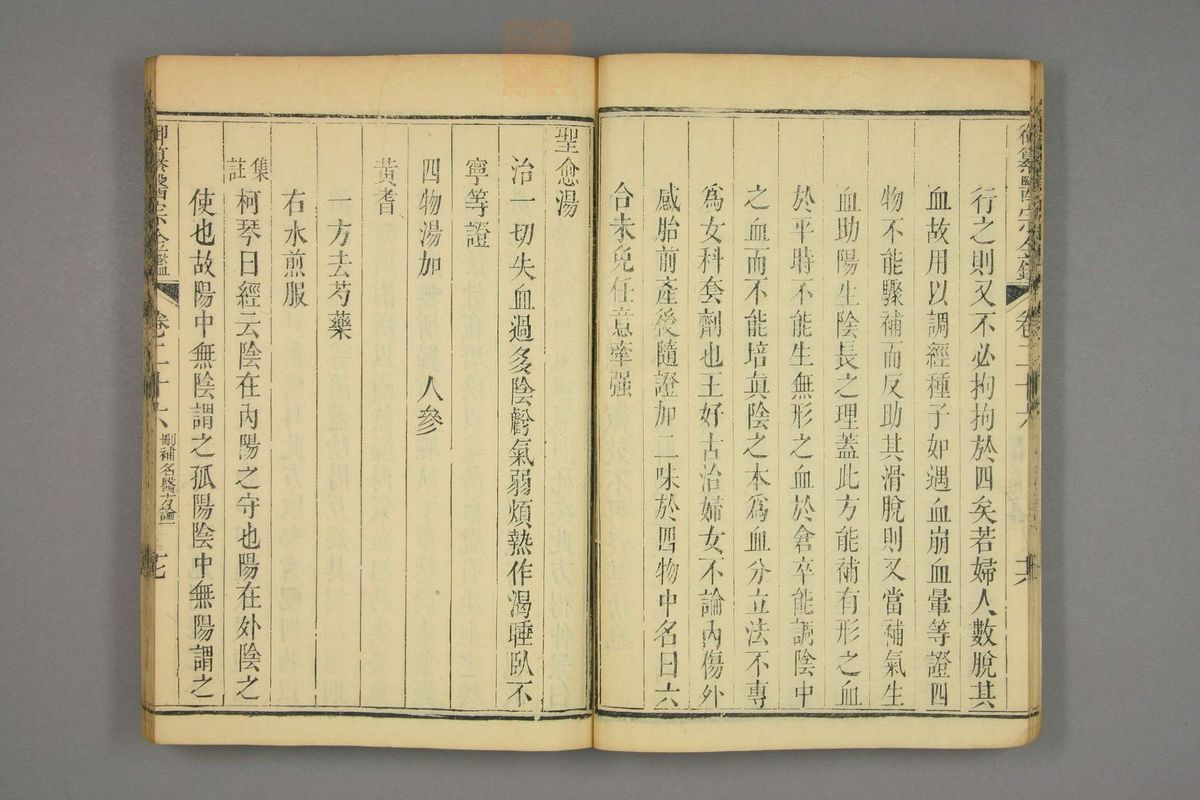 御纂醫宗金鑑 卷二十六 十六
行之則又不必拘拘於四矣若婦人數脫其
血故用以調經種子如遇血崩血暈等證四
物不能驟補而反助其滑脫則又當補氣生
血助陽生陰長之理蓋此方能補有形之血
於平時不能生無形之血於倉卒能調陰中
之血而不能培眞陰之本爲血分立法不專
爲女科套劑也王好古治婦女不論內傷外
感胎前產後隨證加二味於四物中名曰六
合未免任意牽强
聖愈湯
治一切失血過多陰虧氣弱煩熱作渴睡臥不
寧等證
四物湯加 人參
黃耆
一方去芍藥
右水煎服
集註 柯琴曰經云陰在內陽之守也陽在外陰之
使也故陽中無陰謂之孤陽陰中無陽謂之
御纂醫宗金鑑 卷二十六 刪補名醫方論一